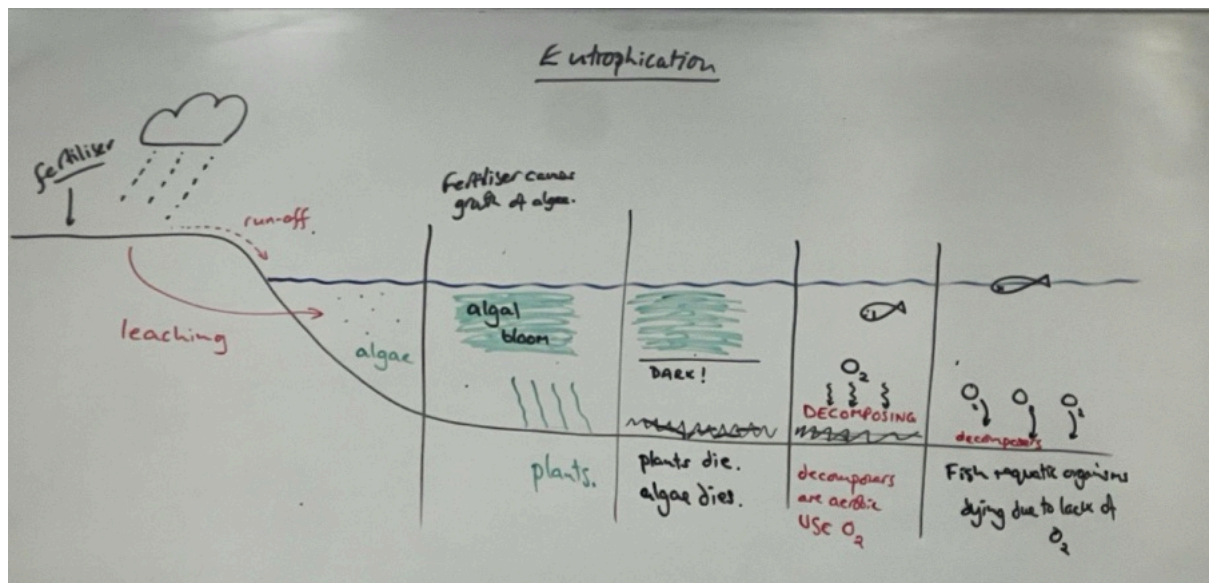 Eutrophication
fertiliser
run-off.
leaching
algae
Fertiliser causes
growth of algae.
algal
bloom
plants.
DARK!
plants die.
algae dies.
O₂
DECOMPOSING
decomposers
are aerobic
USE O₂
O₂
decomposers
Fish + aquatic organisms
dying due to lack of
O₂